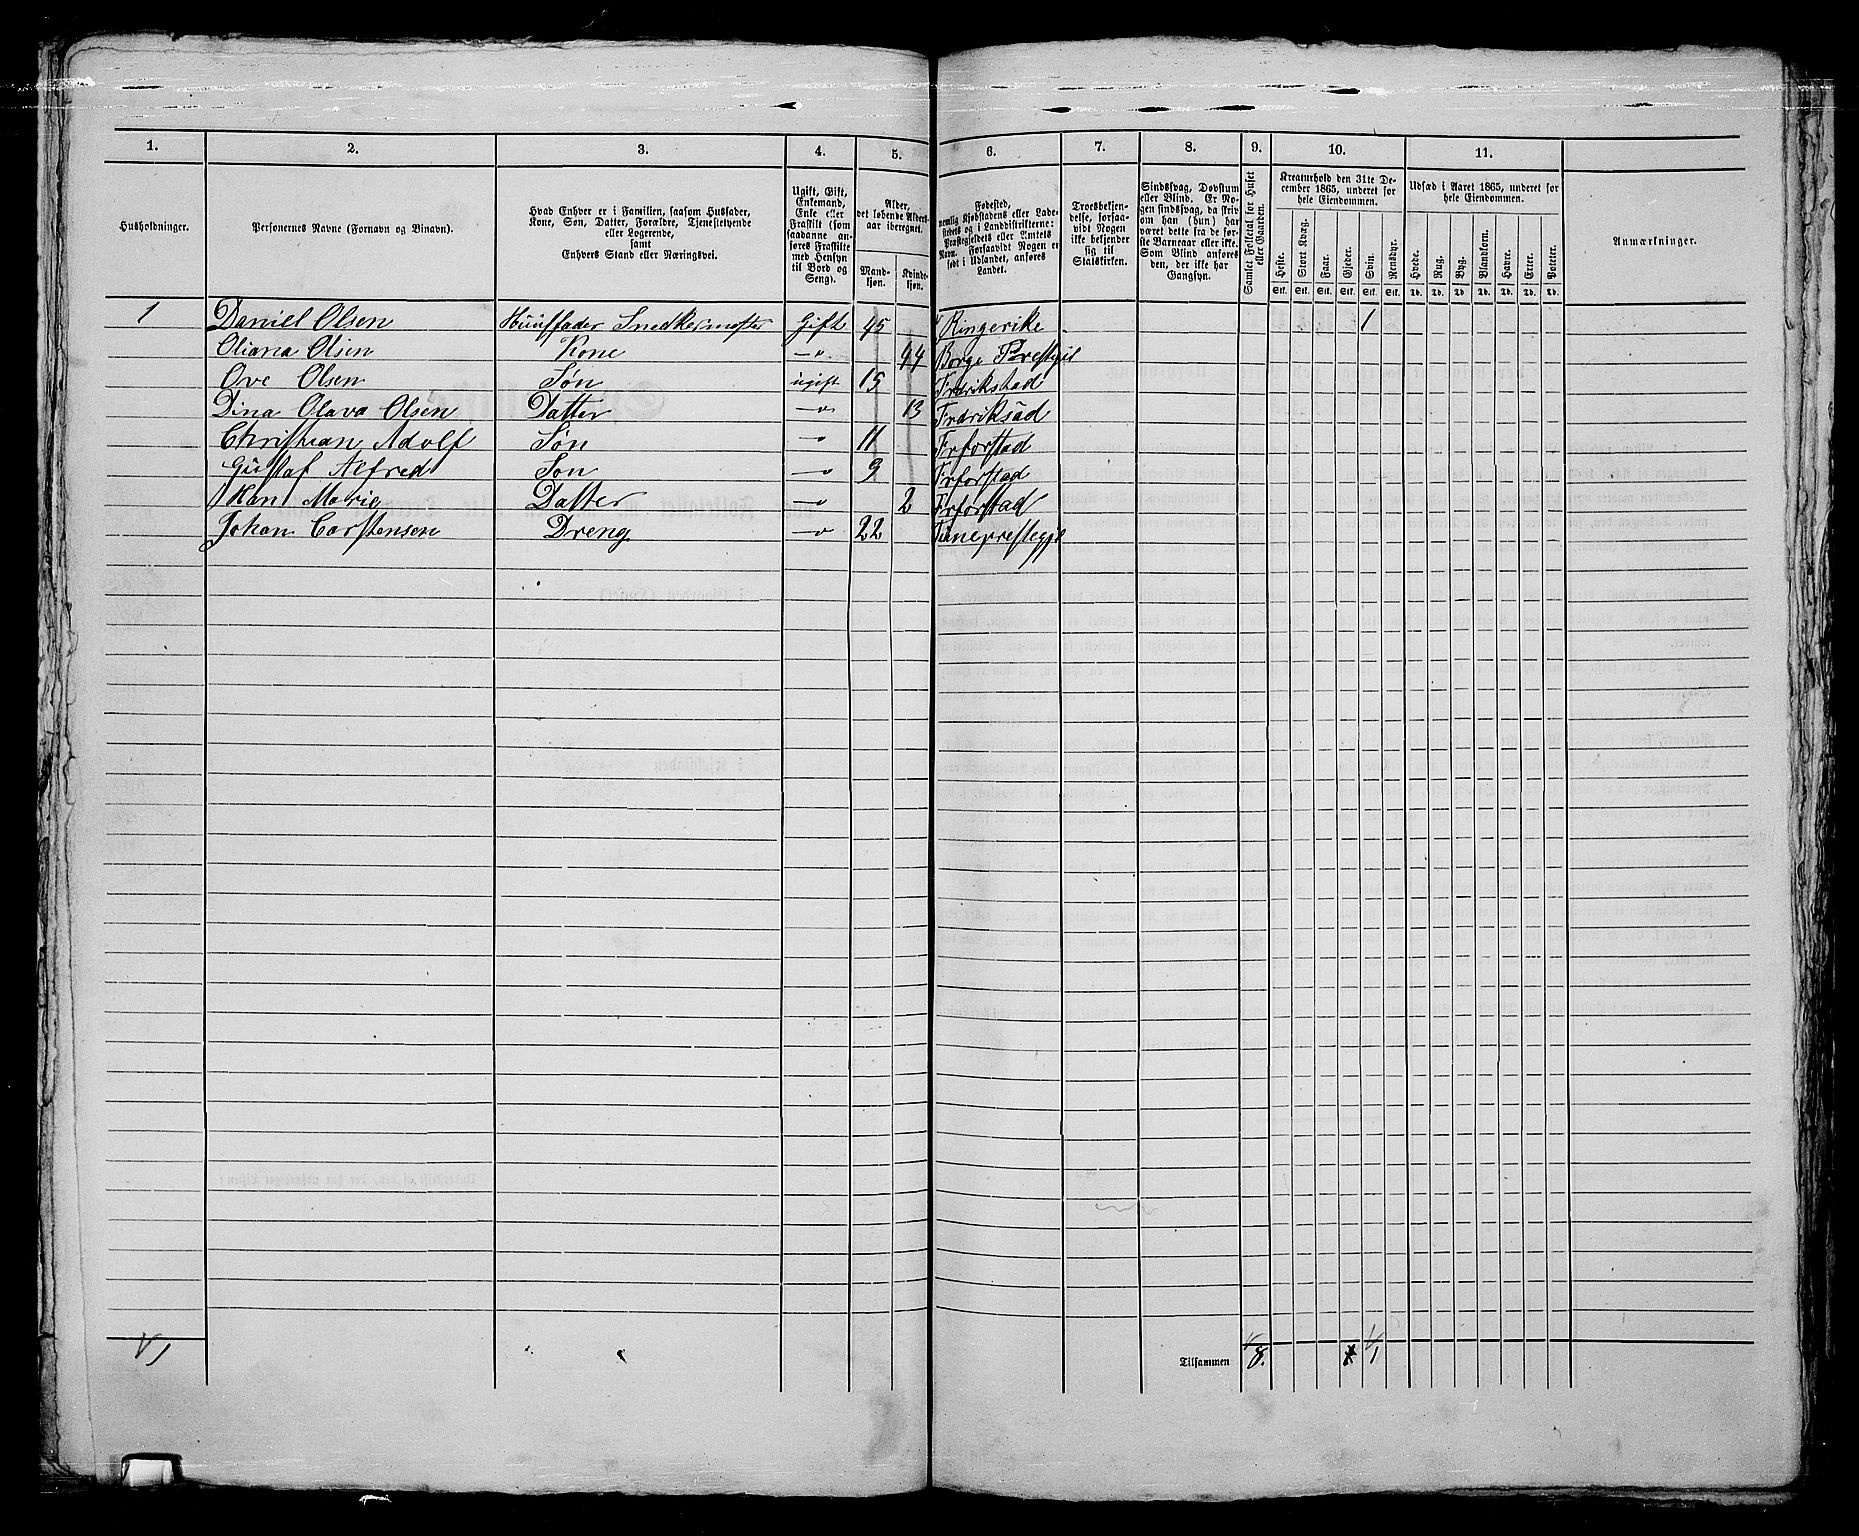 1. 2. 3. 4. 5. 6. 7. 8. 9. 10. 11.
Husholdninger.
Personernes Navne (Fornavn og Binavn).
Hvad Enhver er i Familien, saasom Husfader,
Kone, Søn, Datter, Forældre, Tjenestetyende
eller Logerende,
samt
Enhvers Stand eller Næringsvei.
Ugift, Gift,
Enkemand,
Enke eller
Fraskilt (som
saadanne anføres
Fraskilte
med Hensyn
til Bord og
Seng).
Alder,
det løbende Aldersaar
iberegnet.
Mandkjøn.
Kvindekjøn.
Fødested,
nemlig Kjøbstadens eller Ladestedets
og i Landdistrikterne:
Præstegjeldets eller Amtets
Navn. Forsaavidt Nogen er
født i Udlandet, anføres
Landet.
Troesbekjendelse,
forsaavidt
Nogen
ikke bekjender
sig til
Statskirken.
Sindssvag, Døvstum
eller Blind. Er Nogen
sindssvag, da skriv
om han (hun) har
været dette fra de første
Barneaar eller ikke.
Som Blind anføres
den, der ikke har
Gangsyn.
Samlet Folketal for Huset
eller Gaarden.
Kreaturhold den 31te December
1865, underet for
hele Eiendommen.
Heste. Stort Kvæg. Faar. Gjeder. Svin. Rensdyr.
Stk. Stk. Stk. Stk. Stk. Stk.
Udsæd i Aaret 1865, underet for
hele Eiendommen.
Hvede. Rug. Byg. Blandkorn. Havre. Erter. Poteter.
Td. Td. Td. Td. Td. Td. Td.
Anmærkninger.
1 Daniel Olsen Huusfader Snedkermester Gift 45 Ringerike 1
Oliana Olsen Kone –〃 44 Borge Prestegjl
Ove Olsen Søn ugift 15 Fredrikstad
Dina Olava Olsen Datter –〃 13 Fredriksad
Christian Adolf Søn –〃 11 Frforstad
Gustaf Alfred Søn –〃 9 Frforstad
Marie Datter –〃 2 Frforstad
Johan Carstensen Dreng –〃 22 Tuneprestegjl
1 Tilsammen 8. 1